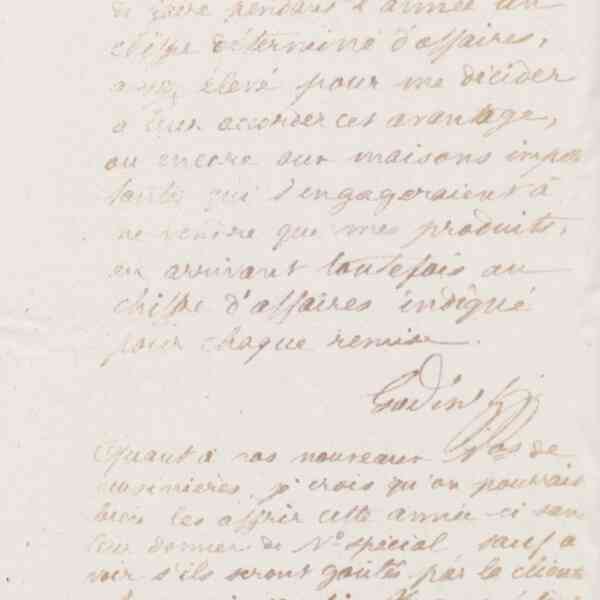 de faire pendant l'année un
chiffre déterminé d'affaires,
assez élevé pour me décider
à leur accorder cet avantage,
ou encore aux maisons impor
tantes qui s'engageraient à
ne vendre que mes produits,
en arrivant toutefois au
chiffre d'affaires indiqué
pour chaque remise.
Godin
Quant à vos nouveaux Nos de
cuisinières, je crois qu'on pourrait
bien les offrir cette année-ci sans
leur donner de No spécial sauf à
voir s'ils seront goûtés par le client